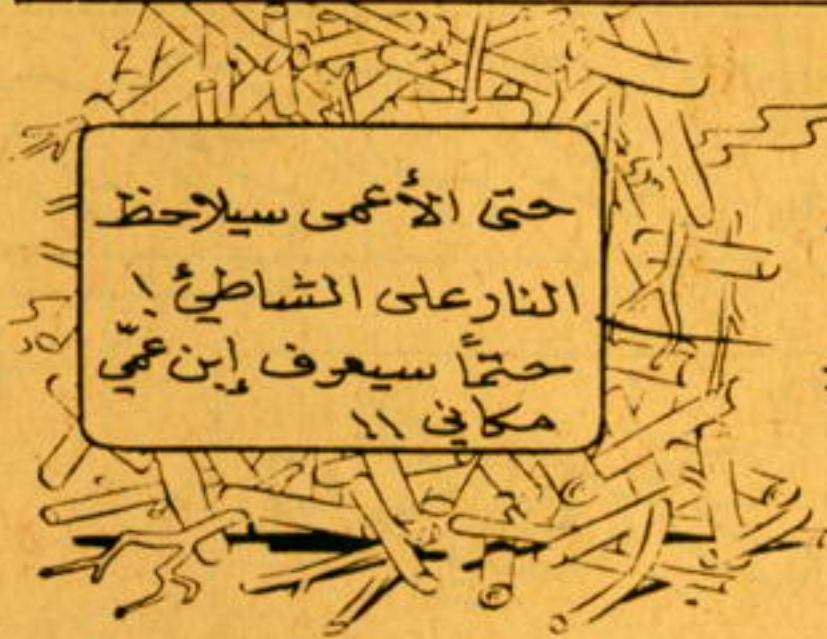 حتى الأعمى سيلاحظ
النار على الشاطئ !
حتمًا سيعرف إبن عمّي
مكاني !!